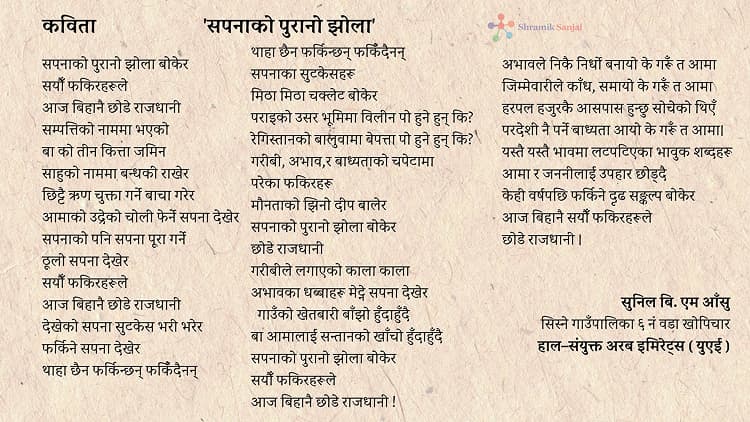 कविता
'सपनाको पुरानो झोला'
Shramik Sanjal
सपनाको पुरानो झोला बोकेर
सयौँ फकिरहरूले
आज बिहानै छोडे राजधानी
सम्पत्तिको नाममा भएको
बा को तीन कित्ता जमिन
साहुको नाममा बन्धकी राखेर
छिट्टै ऋण चुक्ता गर्ने बाचा गरेर
आमाको उद्रेको चोली फेर्ने सपना देखेर
सपनाको पनि सपना पूरा गर्ने
ठूलो सपना देखेर
सयौँ फकिरहरूले
आज बिहानै छोडे राजधानी
देखेको सपना सुटकेस भरी भरेर
फर्किने सपना देखेर
थाहा छैन फर्किन्छन् फर्किँदैनन्
थाहा छैन फर्किन्छन् फर्किँदैनन्
सपनाका सुटकेसहरू
मिठा मिठा चक्लेट बोकेर
पराइको उसर भूमिमा विलीन पो हुने हुन् कि?
रेगिस्तानको बालुवामा बेपत्ता पो हुने हुन् कि?
गरीबी, अभाव,र बाध्यताको चपेटामा
परेका फकिरहरू
मौनताको झिनो दीप बालेर
सपनाको पुरानो झोला बोकेर
छोडे राजधानी
गरीबीले लगाएको काला काला
अभावका धब्बाहरू मेट्ने सपना देखेर
गाउँको खेतबारी बाँझो हुँदाहुँदै
बा आमालाई सन्तानको खाँचो हुँदाहुँदै
सपनाको पुरानो झोला बोकेर
सयौँ फकिरहरूले
आज बिहानै छोडे राजधानी !
अभावले निकै निर्धो बनायो के गरूँ त आमा
जिम्मेवारीले काँध, समायो के गरूँ त आमा
हरपल हजुरकै आसपास हुन्छु सोचेको थिएँ
परदेशी नै पर्ने बाध्यता आयो के गरूँ त आमा।
यस्तै यस्तै भावमा लटपटिएका भावुक शब्दहरू
आमा र जननीलाई उपहार छोड्दै
केही वर्षपछि फर्किने दृढ सङ्कल्प बोकेर
आज बिहानै सयौँ फकिरहरूले
छोडे राजधानी ।
सुनिल बि. एम आँसु
सिस्ने गाउँपालिका ६ नं वडा खोपिचार
हाल–संयुक्त अरब इमिरेट्स ( युएई )